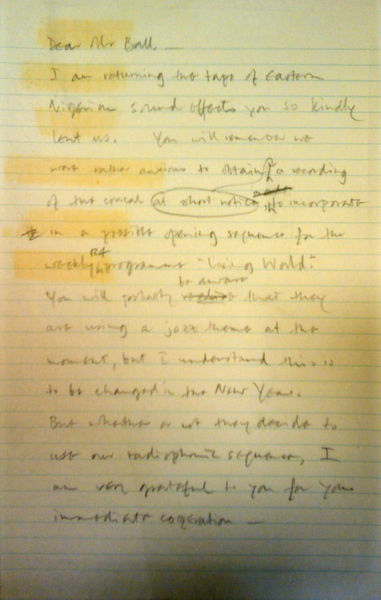 Dear Mr Ball —
I am returning the tape of Eastern
Nigerian sound effects you so kindly
lent us. You will remember we
were rather anxious to obtain a recording
of the conical at short notice to incorporate
in a possible opening sequence for the
weekly R4 programme "Living World".
You will probably be aware that they
are using a jazz theme at the
moment, but I understand this is
to be changed in the New Year.
But whether or not they decide to
use our radiophonic sequence, I
am very grateful to you for your
immediate cooperation —